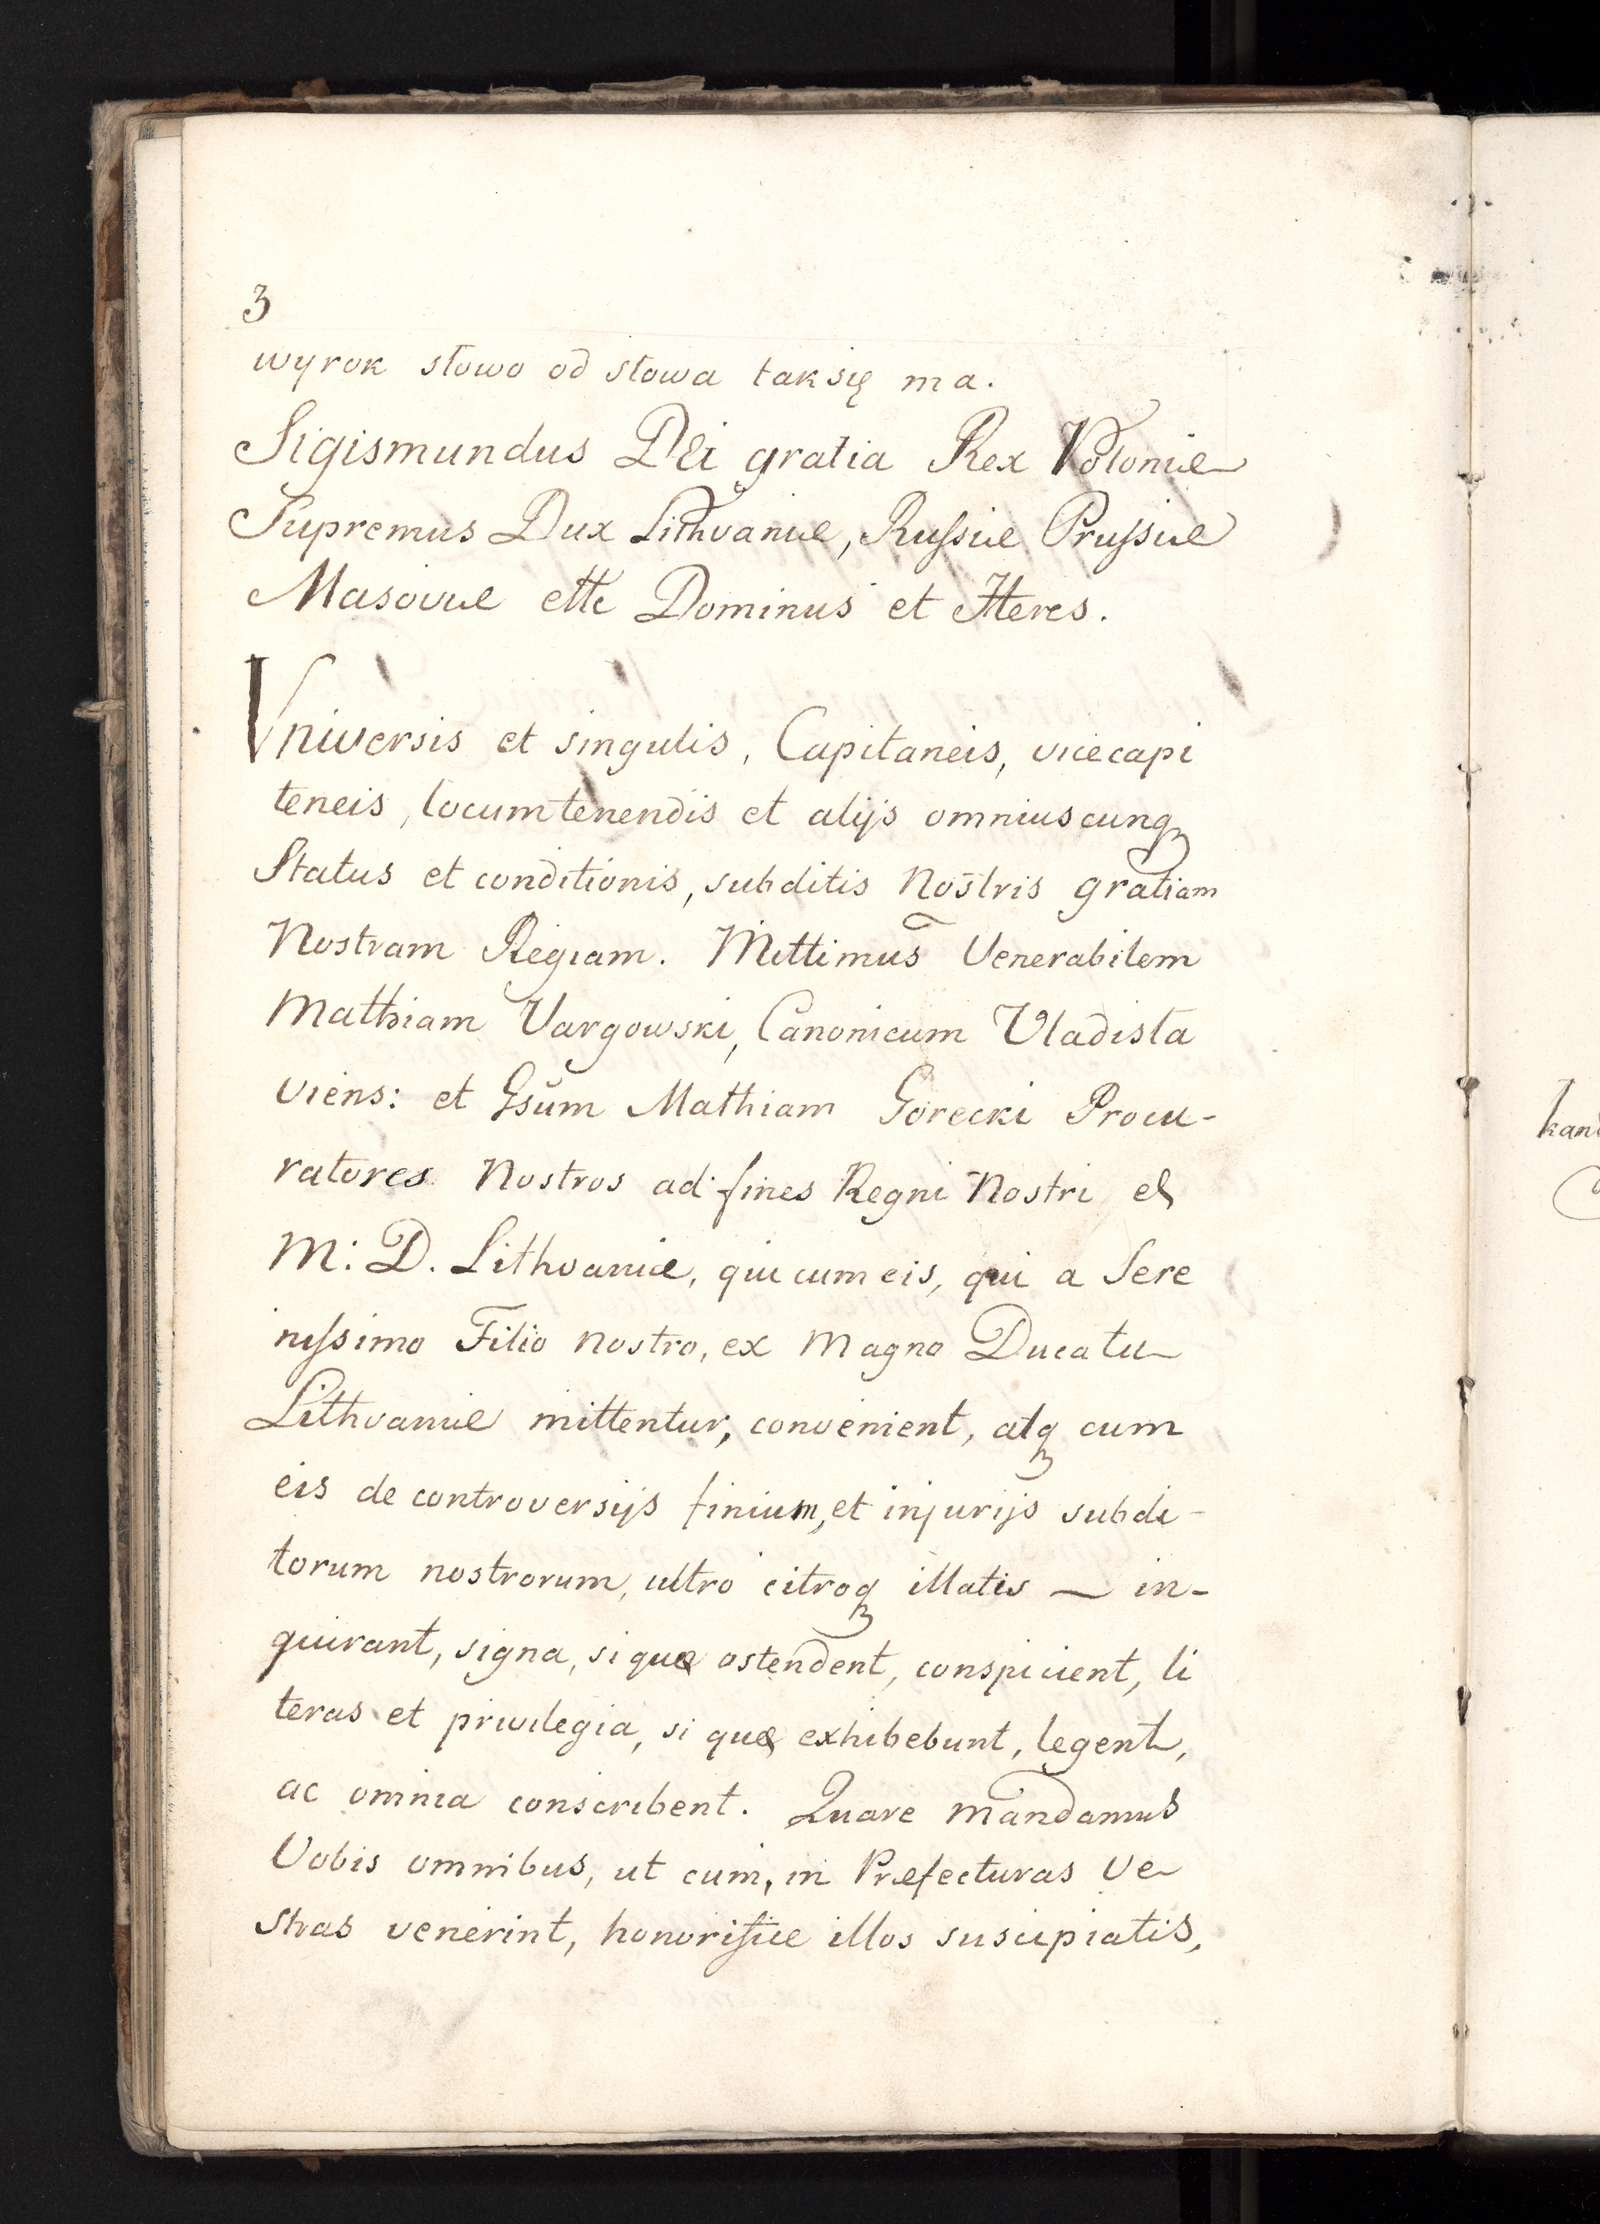 3
wyrok słowo od słowa tak się ma.
Sigismundus Dei gratia Rex Poloniæ
Supremus Dux Lithvaniæ, Rußiæ Prußiæ
Masoviæ ettc Dominus et Heres.
Vniversis et singulis, Capitaneis, vicecapi
teneis, locumtenendis et alijs omniuscunqꝫ
Status et conditionis, subditis Nostris gratiam
Nostram Regiam. Mittimus Venerabilem
Mathiam Vargowski, Canonicum Vladisla
viens: et Gsum Mathiam Gorecki Procu-
ratores Nostros ad fines Regni Nostri et
M: D. Lithvaniæ, qui cum eis, qui a Sere
nißimo Filio nostro, ex Magno Ducatu
Lithvaniæ mittentur, convenient, atqꝫ cum
eis de controversijs finium, et injurijs subdi-
torum nostrorum, ultro citroqꝫ illatis — in-
quirant, signa, si quæ ostendent, conspicient, li
teras et privilegia, si quæ exhibebunt, legent,
ac omnia conscribent. Quare mandamus
Vobis omnibus, ut cum, in Præfecturas Ve
stras venerint, honorifice illos suscipiatis,